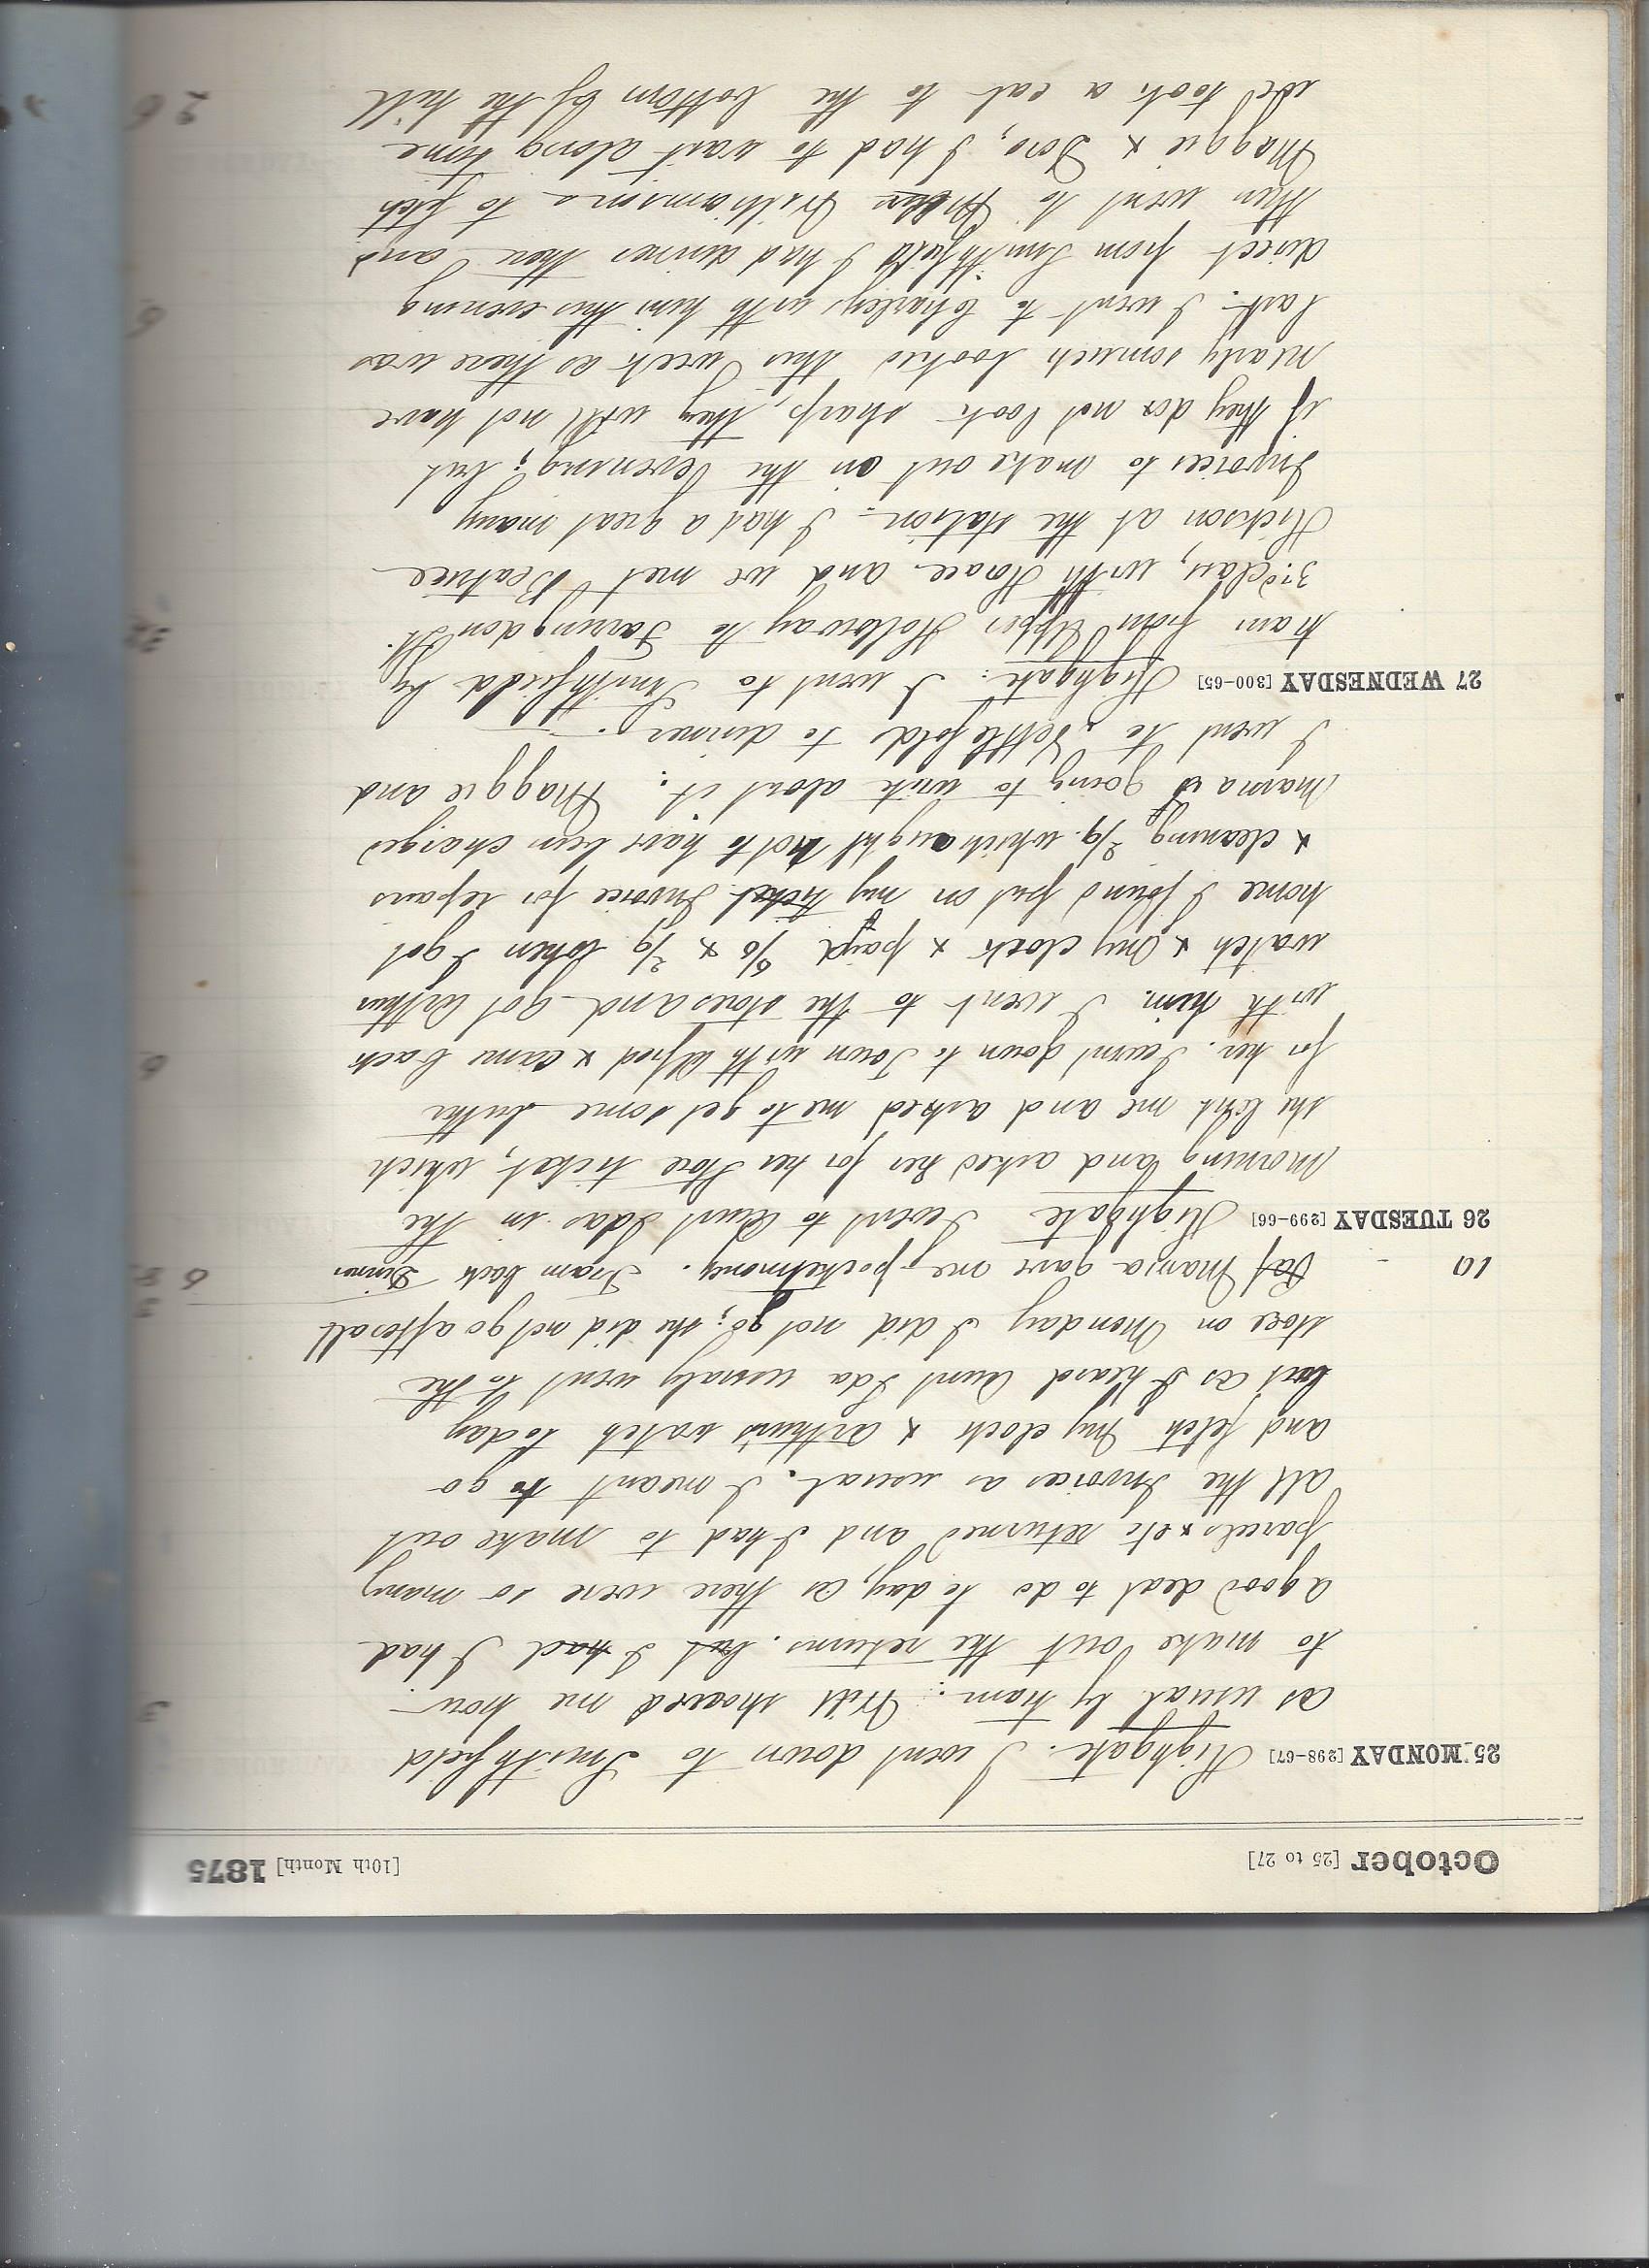 October [25 to 27] [10th Month] 1875
25 MONDAY [298-67] Highgate. I went down to Smithfield
as usual by tram. Will showed me how 3
to make out the returns. but I had I had
a good deal to do today, as there were so many
parcels & etc returned and I had to make out
all the Invoices as usual. I meant to go
and fetch my clock & arthurs watch today
but as I heard Aunt Ida usualy went to the
store on Monday I did not go; she did not go after all
10 - Mama gave me pocketmoney. Tram back Dinner 6
26 TUESDAY [299-66] Highgate I went to Aunt Idas in the
morning and asked her for her Store ticket, which
she lent me and asked me to get some butter
for her. I went down to Town with Alfred & came back 6
with him. I went to the stores and got Arthurs
watch & my clock & payd 6/0 & 2/9 when I got
home I found put on my ticket Invoice for repairs
& cleaning 2/9. which aught not to have been charged
Mama is going to write about it. Maggie and
I went to Nettlefolds to dinner.
27 WEDNESDAY [300-65] Highgate. I went to Smithfield by
train from Upper Holloway to Farringdon St.
3rd Class, with Horace and we met Beatrice
Hickson at the station. I had a great many
Invoices to make out in the evening; but
if they dox not look sharp, they will not have
nearly somuch booked this week as there was
last. I went to Charleys with him this evening 6
direct from Smithfield I had dinner there and
then went to Williamsons to fetch
Maggie & Dora, I had to wait along time
we took a cab to the bottom of the hill 2 6